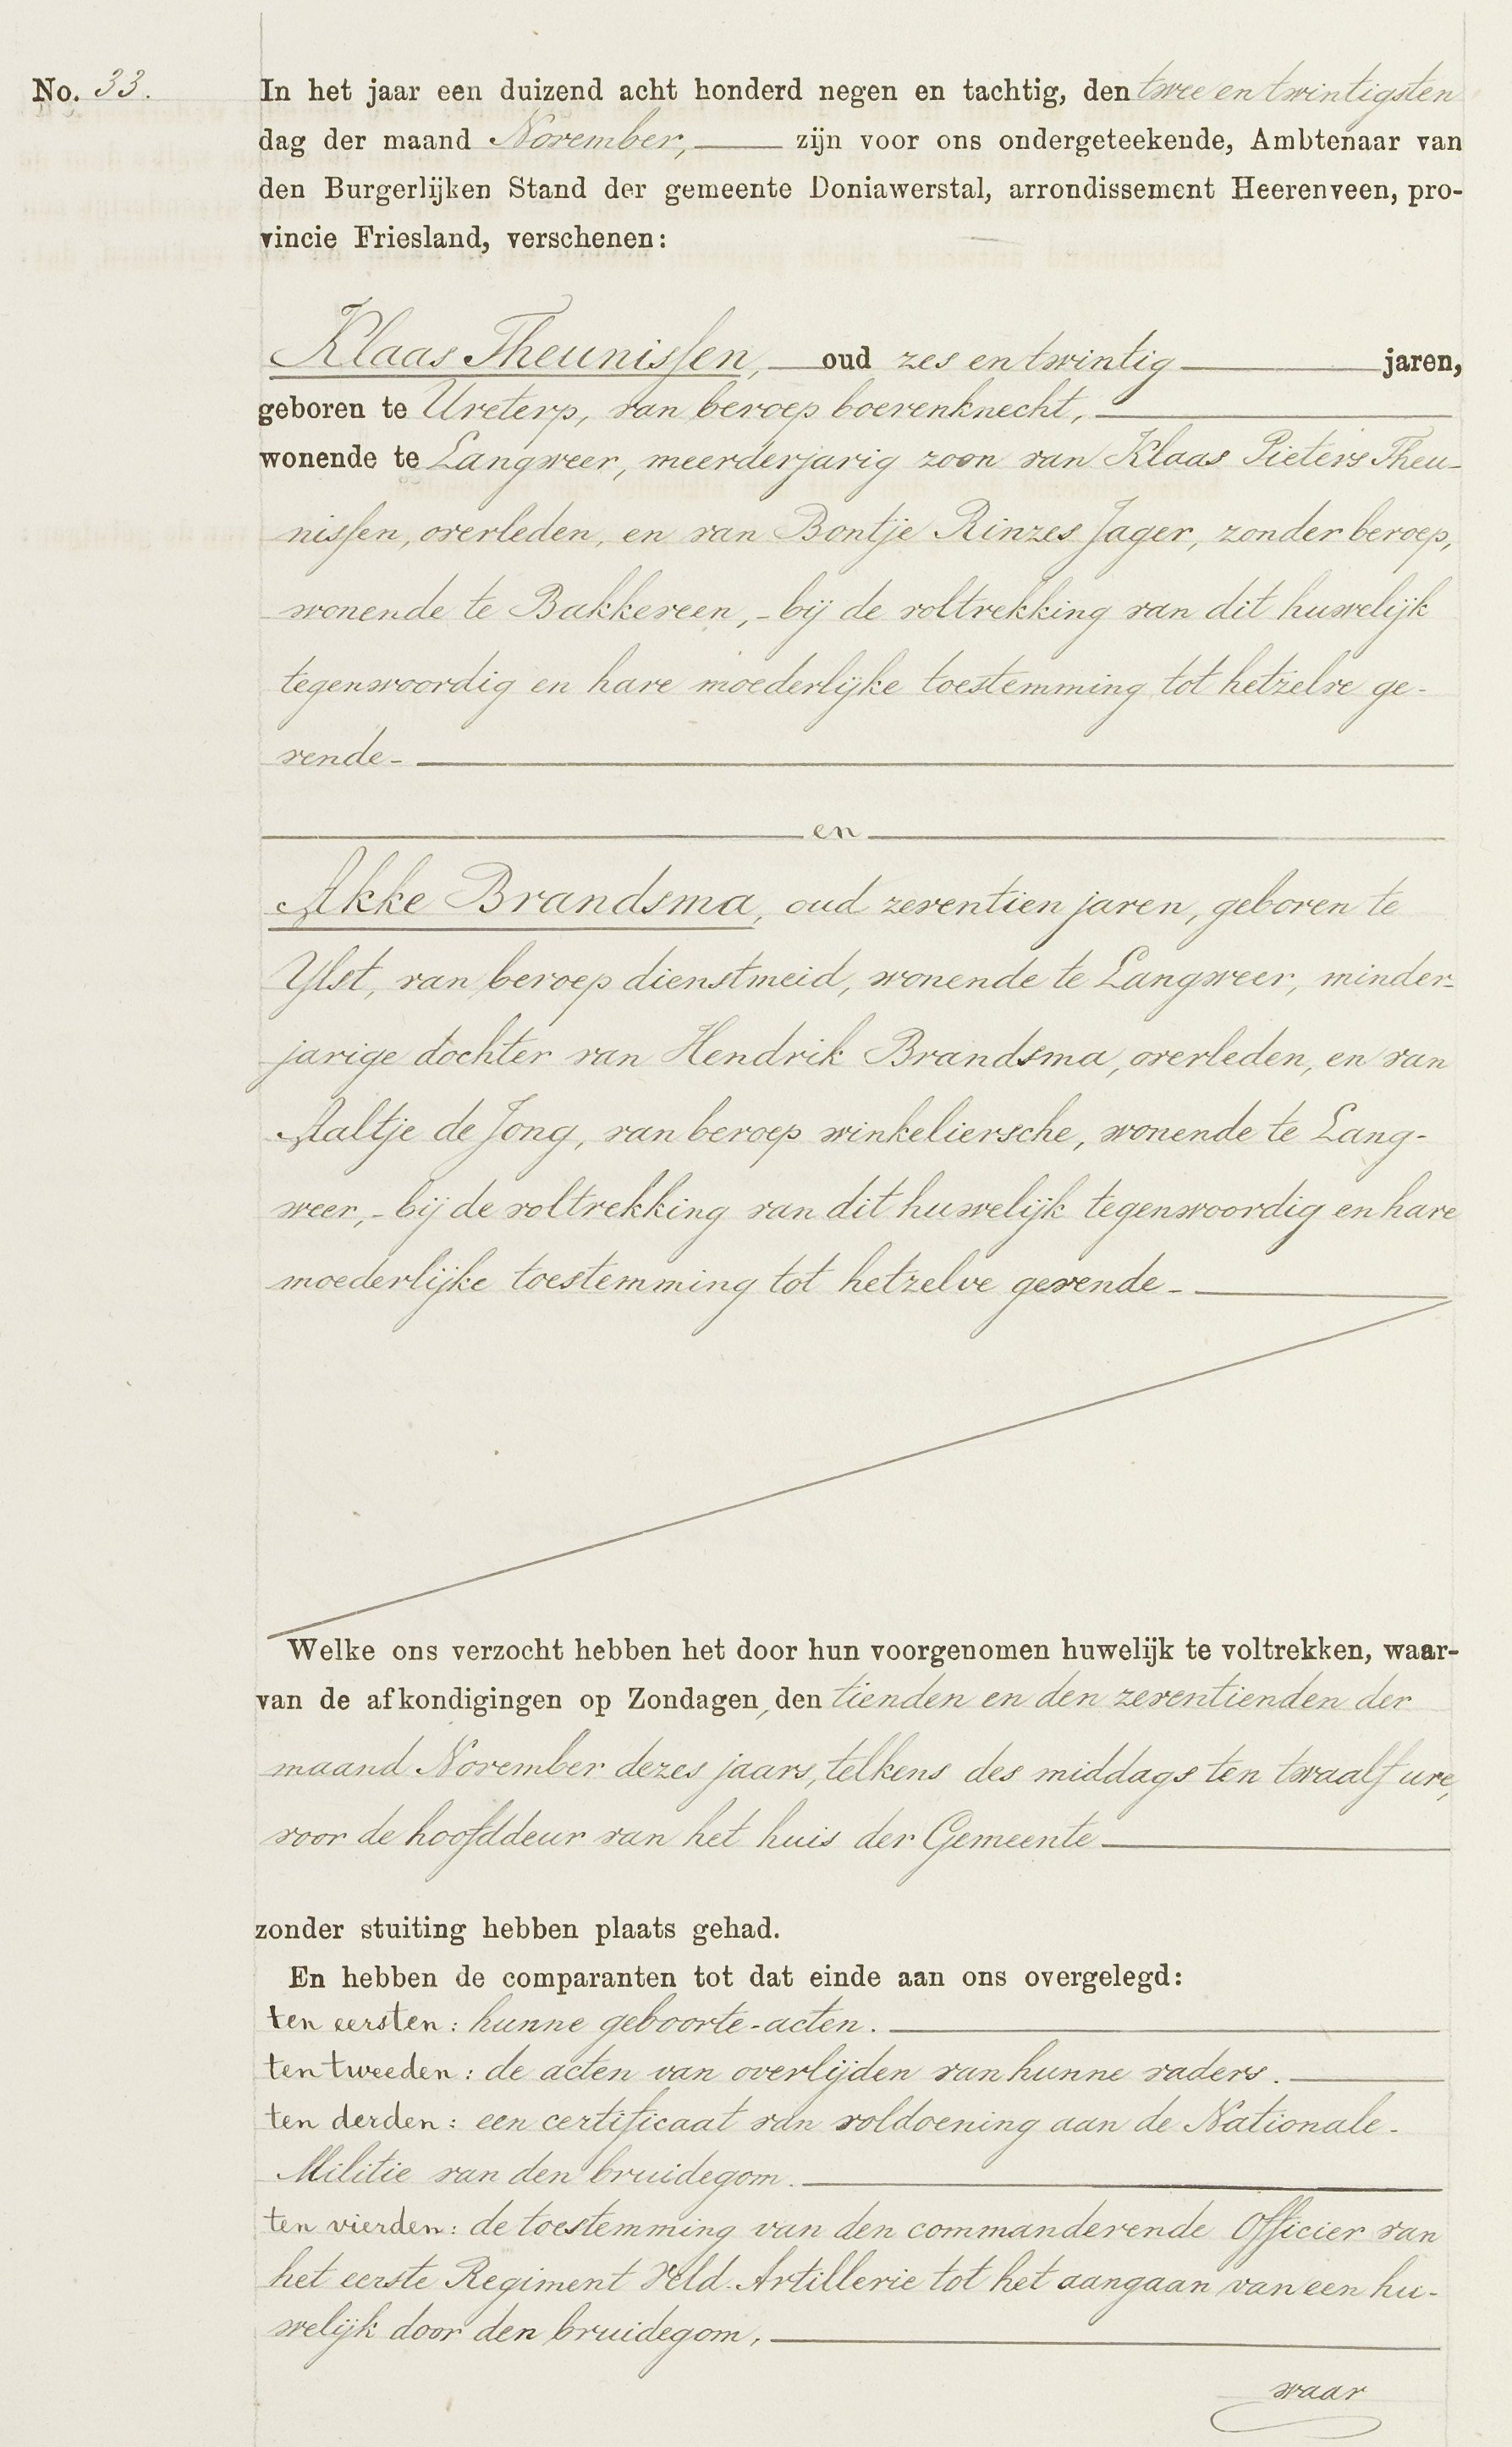 No. 33.
In het jaar een duizend acht honderd negen en tachtig, den twee en twintigsten
dag der maand November, zijn voor ons ondergeteekende, Ambtenaar van
den Burgerlijken Stand der gemeente Doniawerstal, arrondissement Heerenveen, pro-
vincie Friesland, verschenen:
Klaas Theunissen, oud zes en twintig jaren,
geboren te Ureterp, van beroep boerenknecht,
wonende te Langweer, meerderjarig zoon van Klaas Pieters Theu-
nissen, overleden, en van Bontje Rinzes Jager, zonder beroep,
wonende te Bakkeveen, - bij de voltrekking van dit huwelijk
tegenwoordig en hare moederlijke toestemming tot hetzelve ge-
vende -
en
Akke Brandsma, oud zeventien jaren, geboren te
Ylst, van beroep dienstmeid, wonende te Langweer, minder-
jarige dochter van Hendrik Brandsma, overleden, en van
Aaltje de Jong, van beroep winkeliersche, wonende te Lang-
weer, - bij de voltrekking van dit huwelijk tegenwoordig en hare
moederlijke toestemming tot hetzelve gevende -
Welke ons verzocht hebben het door hun voorgenomen huwelijk te voltrekken, waar-
van de afkondigingen op Zondagen, den tienden en den zeventienden der
maand November dezes jaars, telkens des middags ten twaalf ure,
voor de hoofddeur van het huis der Gemeente
zonder stuiting hebben plaats gehad.
En hebben de comparanten tot dat einde aan ons overgelegd:
ten eersten: hunne geboorte-acten.
ten tweeden: de acten van overlijden van hunne vaders.
ten derden: een certificaat van voldoening aan de Nationale-
Militie van den bruidegom.
ten vierden: de toestemming van den commanderende Officier van
het eerste Regiment Veld-Artillerie tot het aangaan van een hu-
welijk door den bruidegom,
waar